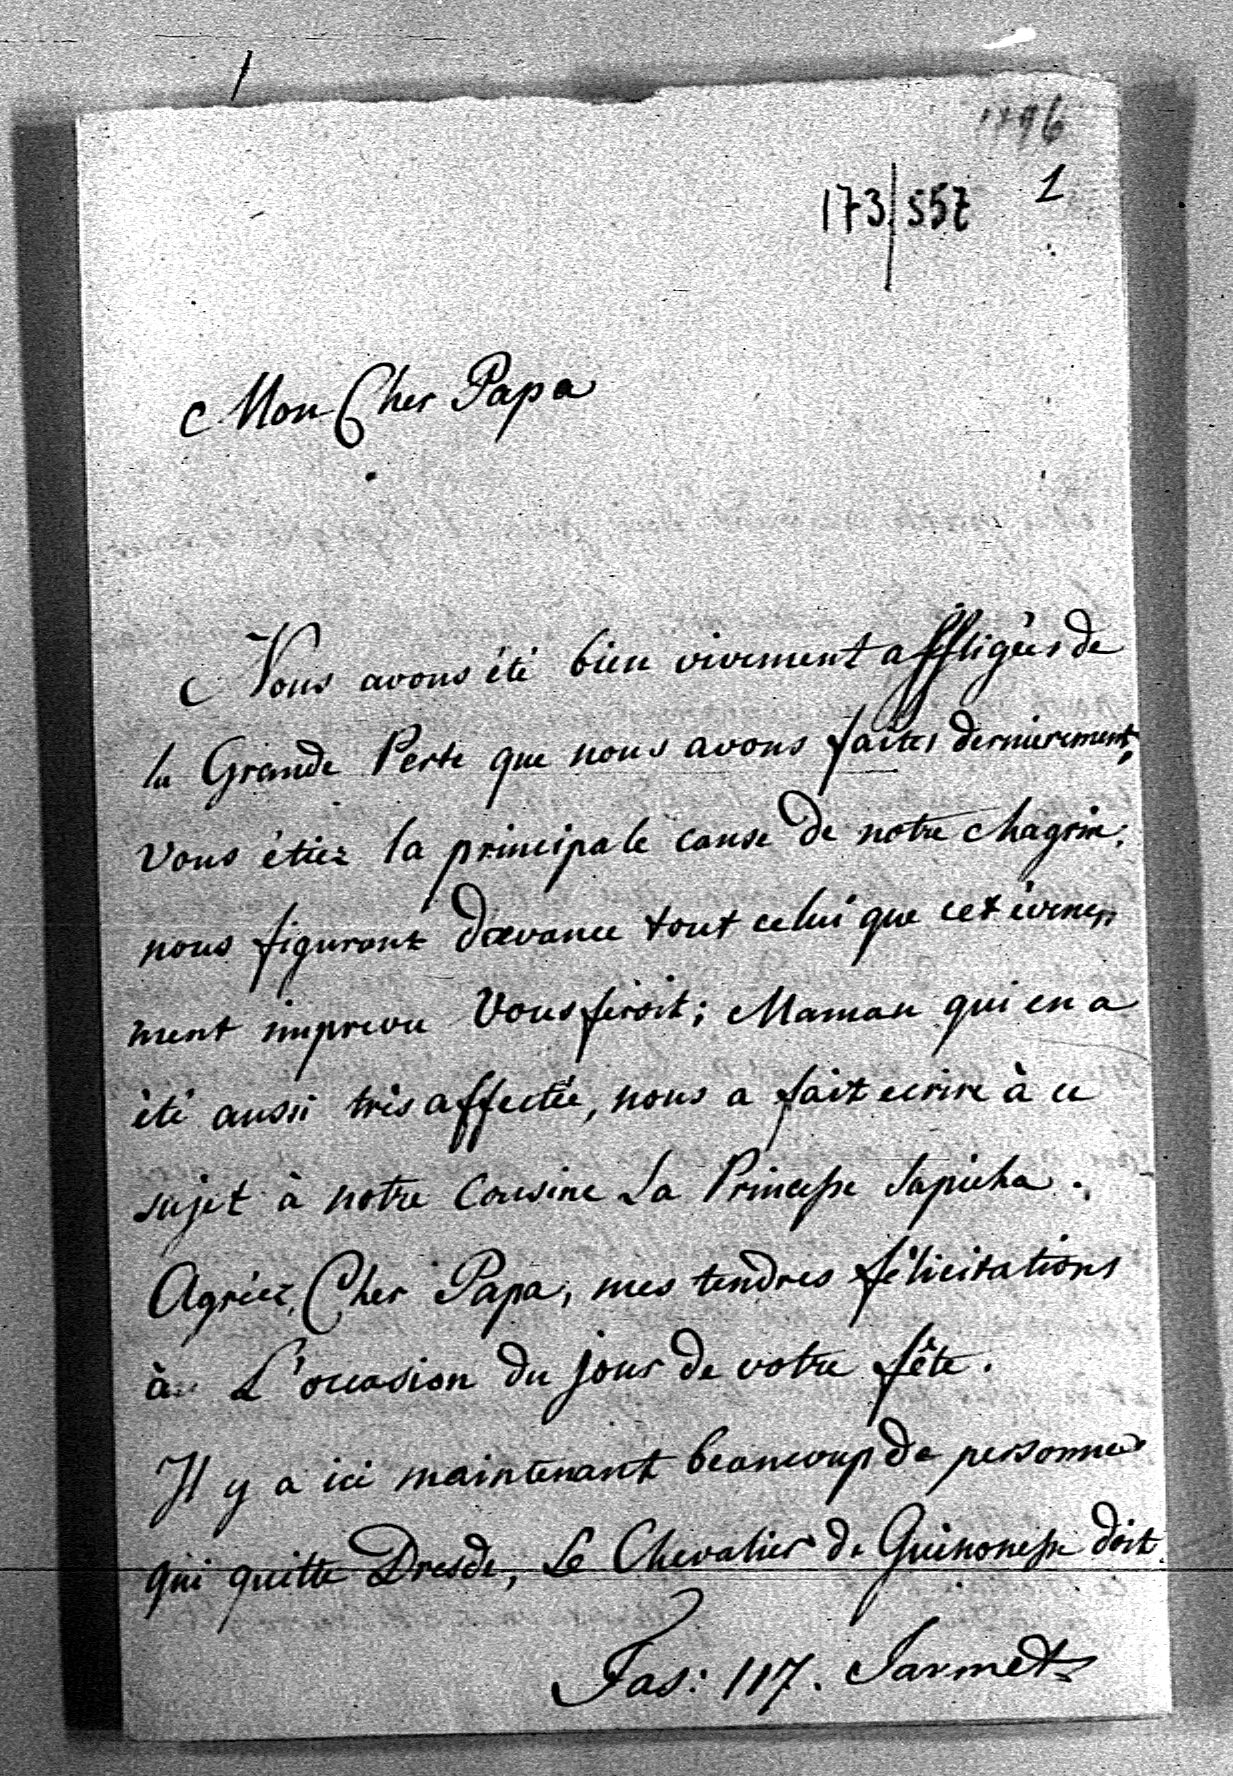 1796
1
173/557
Mon Cher Papa
Nous avons été bien vivement affligées de
la Grande Perte que nous avons faites dernierement,
Vous étiez la principale cause de notre chagrin,
nous figurant d'avance tout celui que cet évene„
ment imprevu Vous feroit; Maman qui en a
été aussi très affectée, nous a fait ecrire à ce
sujet à notre Cousine La Princesse Sapieha.
Agréez, Cher Papa, mes tendres félicitations
à L'occasion du jour de votre fête.
Il y a ici maintenant beaucoup de personnes
qui quitte Dresde, Le Chevalier de doit
Fas: 117.